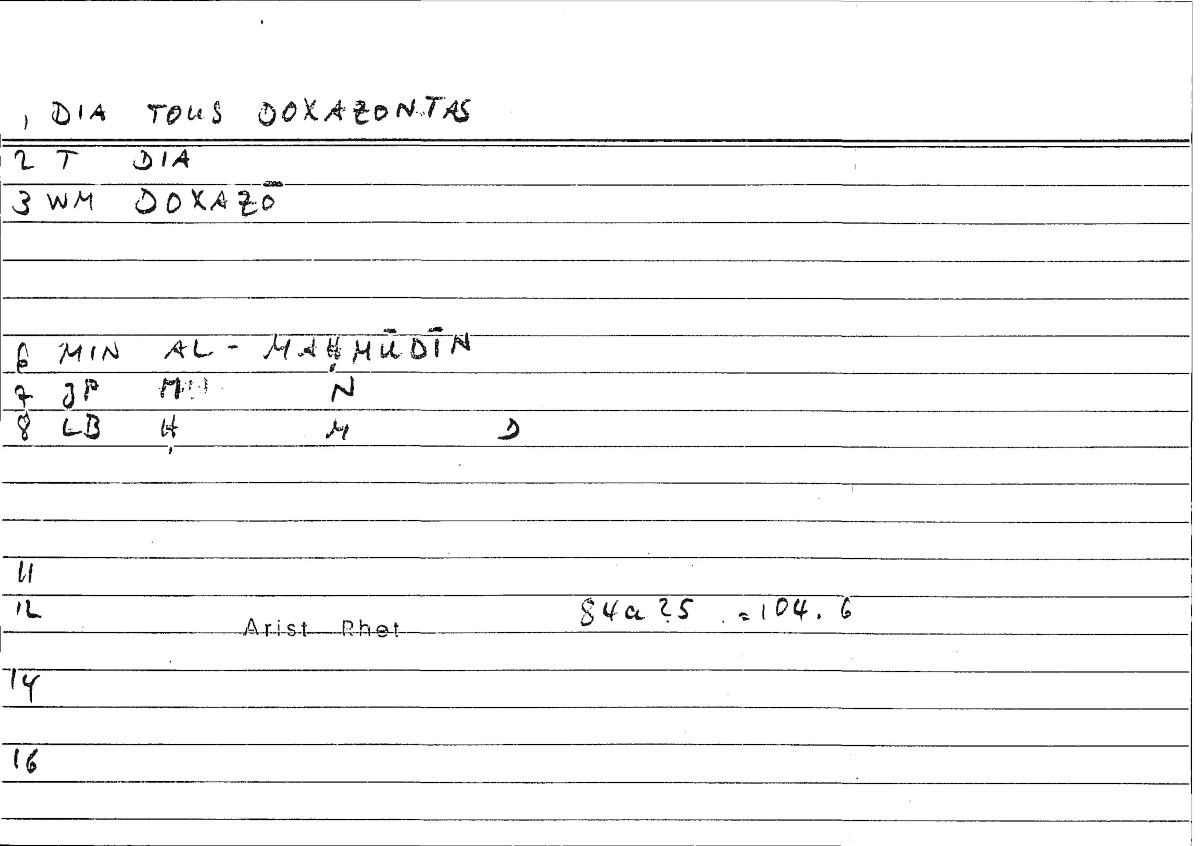 1 DIA TOUS DOXAZONTAS
2 T DIA
3 WM DOXAZŌ
6 MIN AL-MAḤMŪDĪN
7 JP M N
8 LB Ḥ M D
11
12 84a25 = 104.6
Arist Rhet
14
16